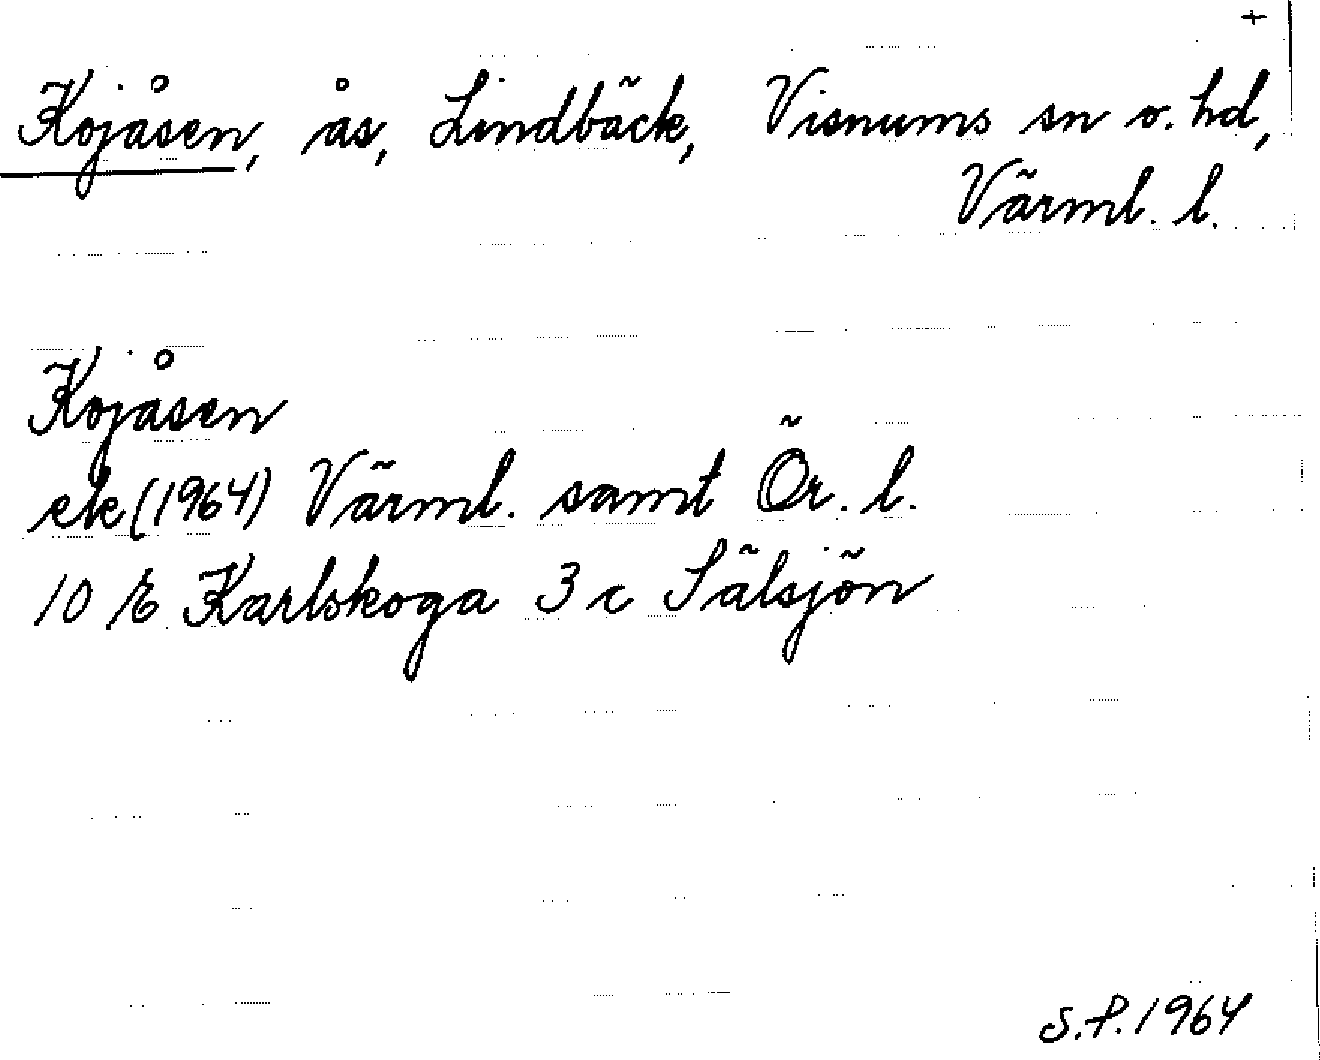 +
Kojåsen, ås, Lindbäck, Visnums sn o. hd,
Värml. l.
Kojåsen
ek (1964) Värml. samt Ör. l.
10 E Karlskoga 3 c Sälsjön
S.P. 1964